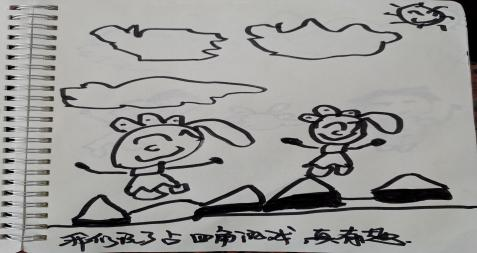 我们玩了占四角游戏,真有趣.